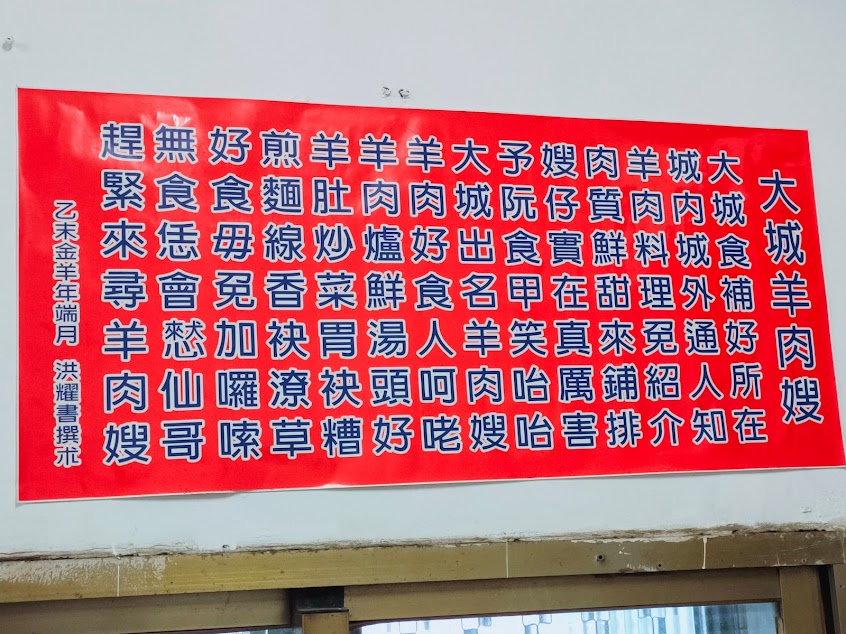 大城羊肉嫂
大城食補好所在
城內城外通人知
羊肉料理免紹介
肉質鮮甜來鋪排
嫂仔實在真厲害
予阮食甲笑咍咍
大城出名羊肉嫂
羊肉好食人呵咾
羊肉爐鮮湯頭好
羊肚炒菜胃袂糟
煎麵線香袂潦草
好食毋免加囉嗦
無食恁會憖仙哥
趕緊來尋羊肉嫂
乙未金羊年端月 洪耀書撰朮